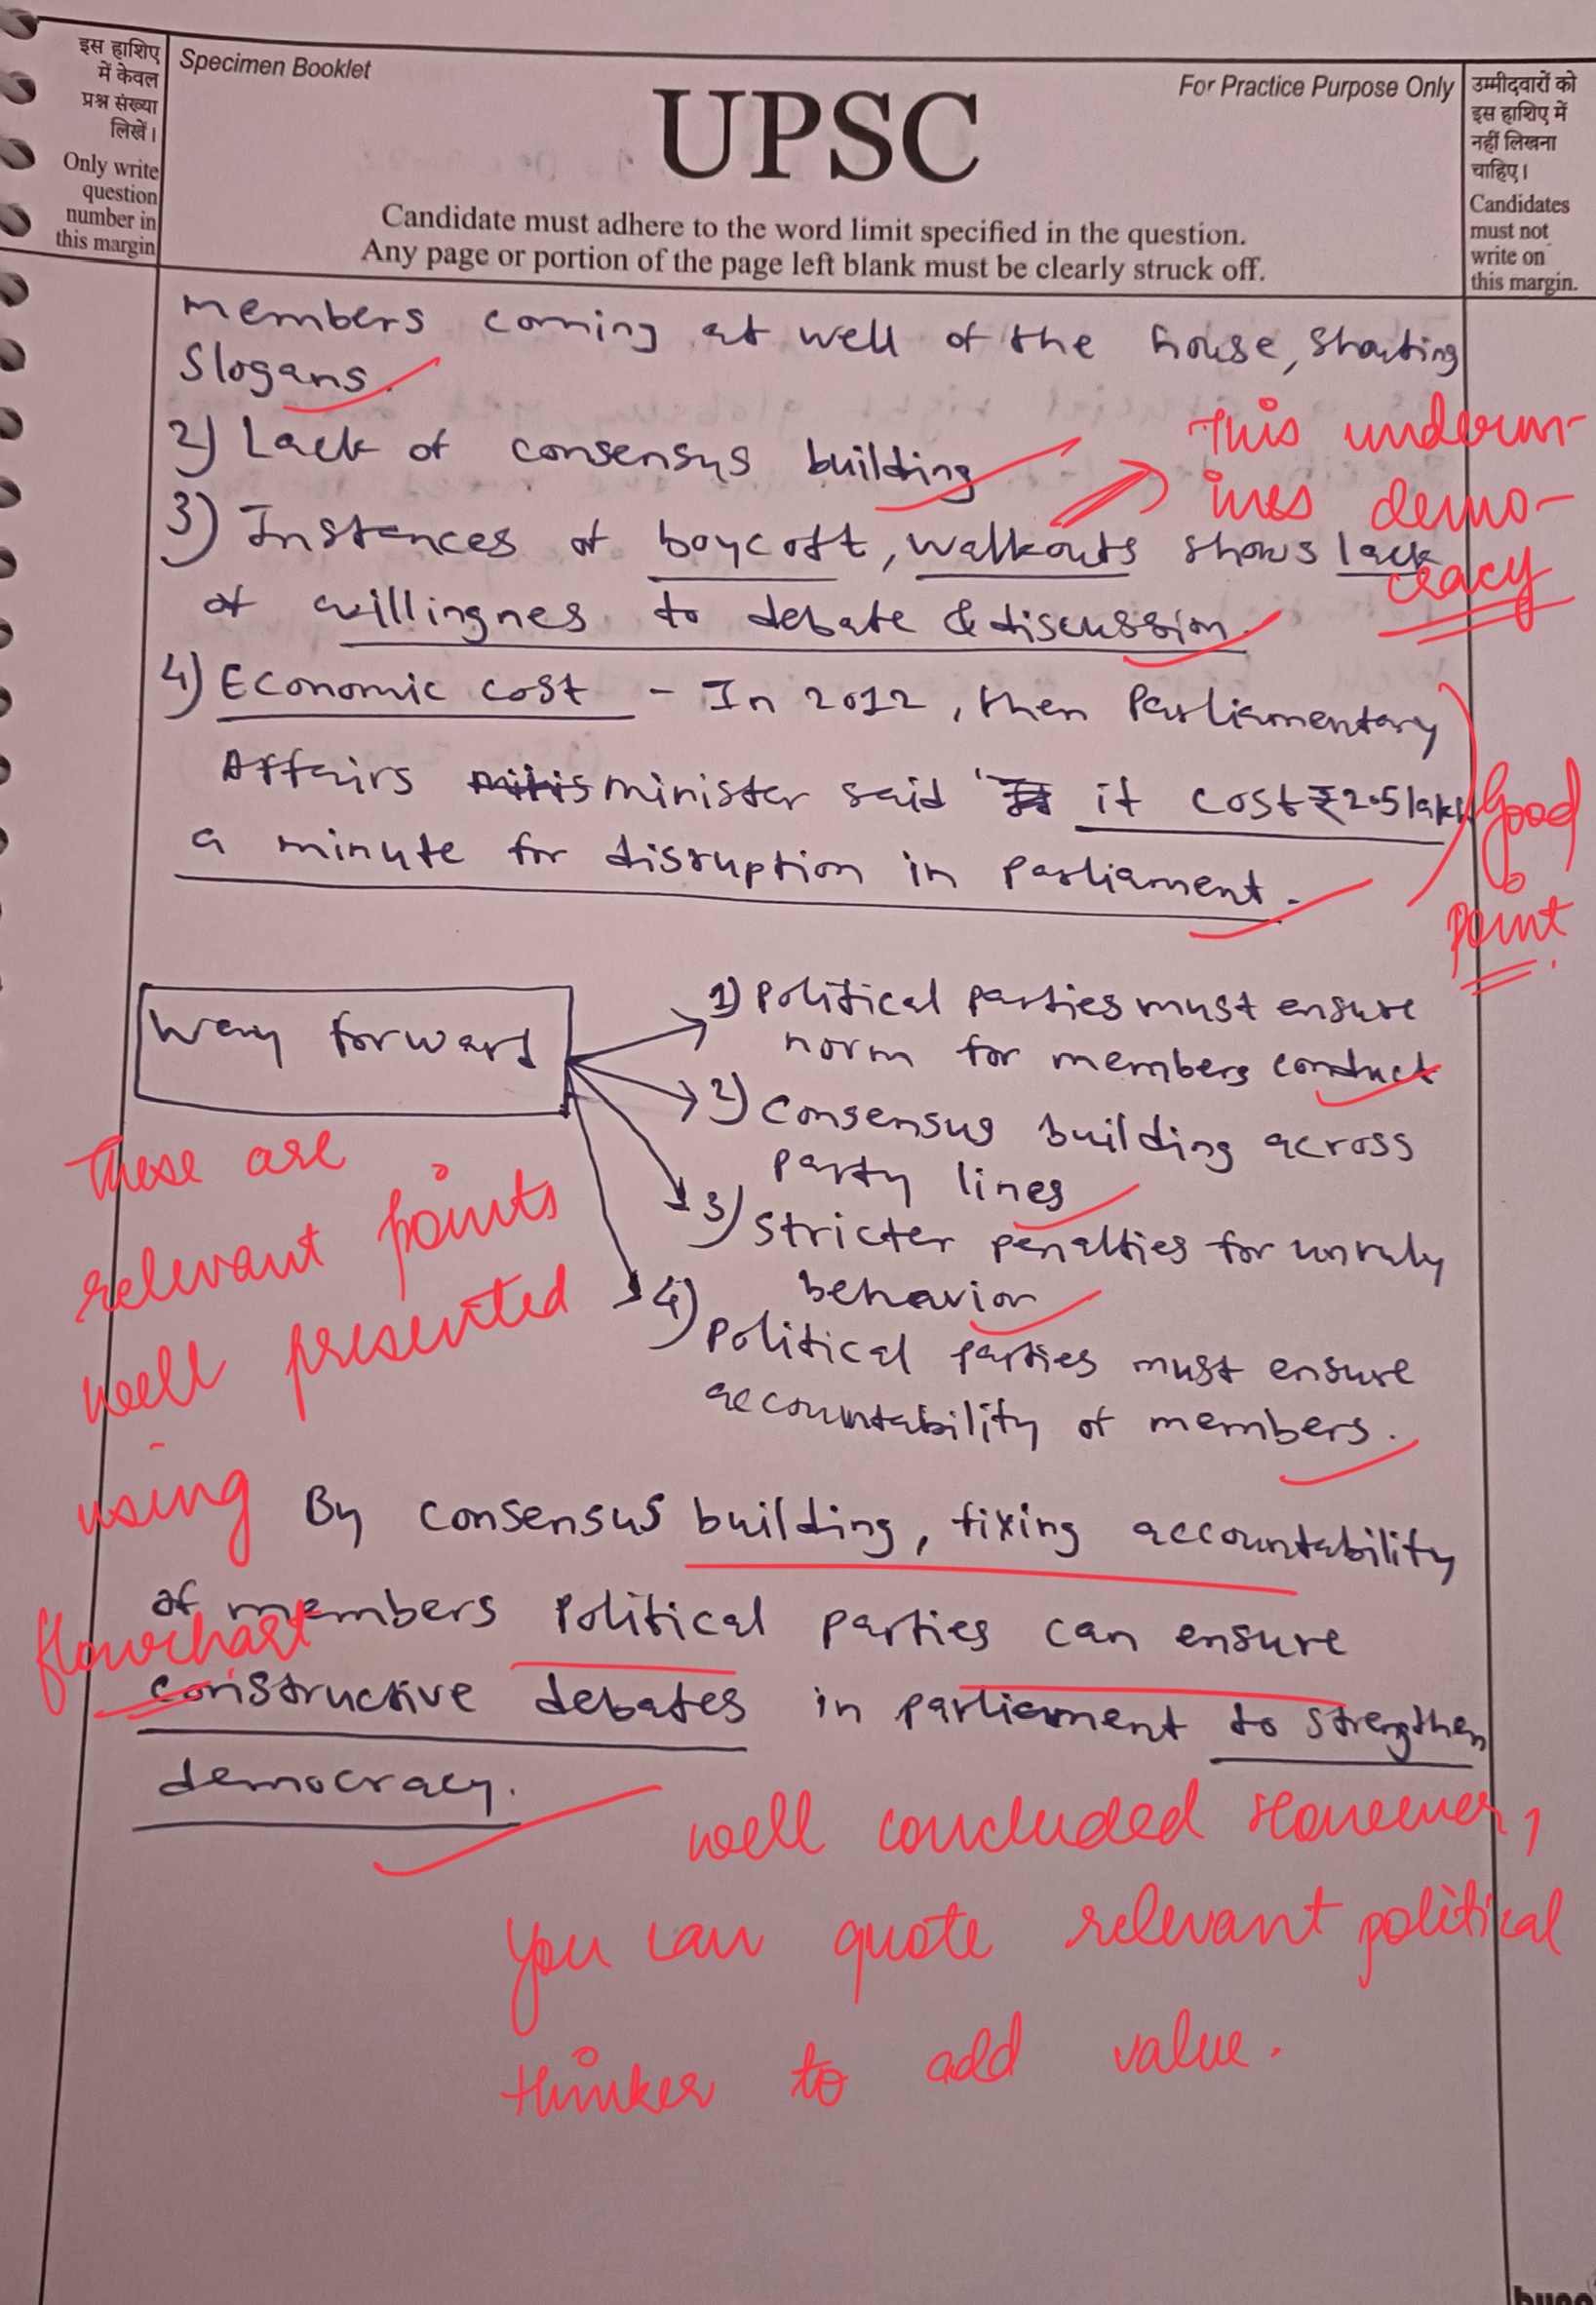 इस हाशिए
में केवल
प्रश्न संख्या
लिखें।
Only write
question
number in
this margin
Specimen Booklet
For Practice Purpose Only
UPSC
Candidate must adhere to the word limit specified in the question.
Any page or portion of the page left blank must be clearly struck off.
उम्मीदवारों को
इस हाशिए में
नहीं लिखना
चाहिए।
Candidates
must not
write on
this margin.
members coming at well of the house, shouting
Slogans.
2) Lack of consensus building
This underm-
ines demo-
cracy
3) Instances of boycott, walkouts shows lack
of willingnes to debate & discussion.
4) Economic cost - In 2012, then Parliamentary
Affairs minister said it cost ₹2.5 lakh
a minute for disruption in Parliament.
Good
point
Way forward
1) Political parties must ensure
norm for members conduct
2) Consensus building across
party lines
3) Stricter penalties for unruly
behavior
4) Political parties must ensure
accountability of members.
These are
relevant points
well presented
using
flowchart
By consensus building, fixing accountability
of members Political parties can ensure
constructive debates in parliament to strengthen
democracy.
well concluded However,
you can quote relevant political
thinker to add value.